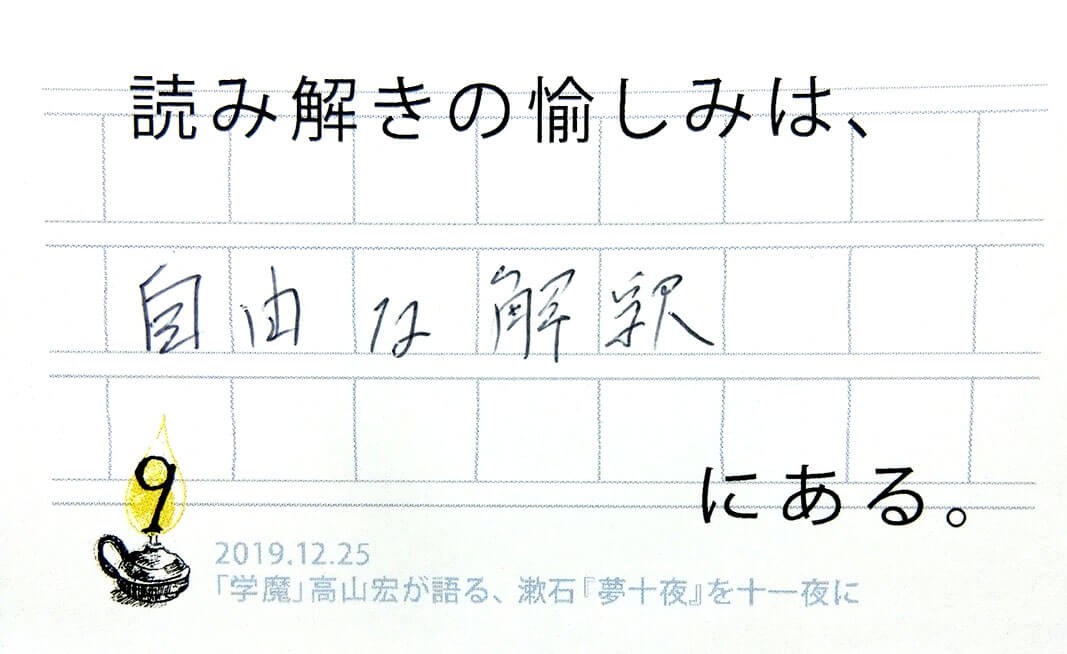 読み解きの愉しみは、
自由な解釈
にある。
9
2019.12.25
「学魔」高山宏が語る、漱石『夢十夜』を十一夜に